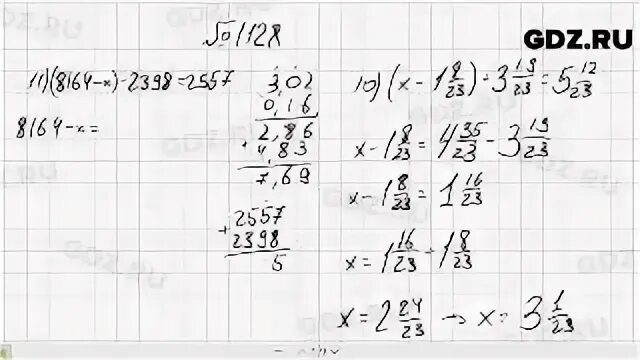 №1128
GDZ.RU
11) (8164-x)-2398=2557
8164-x=
3,02
0,16
2,86
+ 4,83
7,69
+ 2557
2398
5
10) (x - 1 8/23) + 3 19/23 = 5 12/23
x - 1 8/23 = 4 35/23 - 3 19/23
x - 1 8/23 = 1 16/23
x = 1 16/23 + 1 8/23
x = 2 24/23 → x = 3 1/23